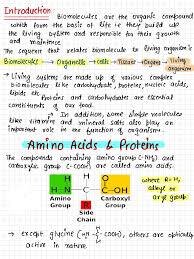 Introduction:
Biomolecules are the organic compounds
which form the basis of life i.e they build up
the living system and responsible for their growth
and maintenance
The sequence that relates biomolecule to living organism is
Biomolecules → Organelles → cells → Tissues → Organs → Living organism
→ Living systems are made up of various complex
biomolecules like carbohydrates, proteins, nucleic acids,
lipids etc.
→ Proteins and carbohydrates are essential
constituents of our food.
→ In addition, some simple molecules
like vitamins and mineral salts also play an
important role in the function of organisms.
Amino Acids & Proteins
The compounds containing amino group (-NH2) and
carboxylic group (-COOH) are called amino acids.
H H O
N C C
H R OH
Amino Group
Carboxyl Group
Side Chain
where R = H,
alkyl or
aryl group
→ except glycine (H - COOH), others are optically
active in nature